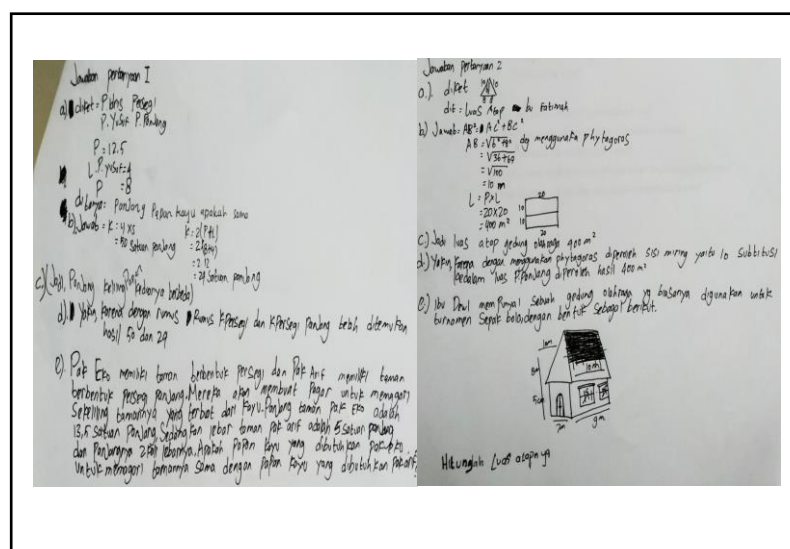 Jawaban pertanyaan I
a) diket = P. Idris Persegi
P. Yusuf P. Panjang
P = 12,5
L P. Yusuf = 4
P = 8
ditanya = panjang papan kayu apakah sama
b) Jawab = K = 4 x s
= 50 satuan panjang
K = 2(P+l)
= 2(8+4)
= 2.12
= 24 satuan panjang
c) Jadi, panjang keliling keduanya berbeda
d) Yakin, karena dengan rumus Rumus K persegi dan K persegi panjang telah ditemukan
hasil 50 dan 24
e) Pak Eko memiliki taman berbentuk persegi dan Pak Arif memiliki taman
berbentuk persegi panjang. Mereka akan membuat Pagar untuk memagari
sekeliling tamannya yang terbuat dari kayu. Panjang taman pak Eko adalah
13,5 satuan panjang. Sedangkan lebar taman pak arif adalah 5 satuan panjang
dan panjangnya 2 kali lebarnya. Apakah papan kayu yang dibutuhkan pak eko
untuk memagari tamannya sama dengan papan kayu yang dibutuhkan pak arif
Jawaban pertanyaan 2
a). diket 10
dit = luas Atap bu Fatimah
b) Jawab = AB² = AC² + BC²
AB = √6² + 8² dg menggunaka phytagoras
= √36+64
= √100
= 10 m
L = P x L
= 20 x 20
= 400 m²
20
10
10
20
c) Jadi luas atap gedung olahraga 400 m²
d) Yakin, karena dengan menggunakan phytagoras diperoleh sisi miring yaitu 10 subtitusi
kedalam luas P. Panjang diperoleh hasil 400 m²
e) Ibu Dewi mempunyai sebuah gedung olahraga yg biasanya digunakan untuk
turnomen sepak bola, dengan bentuk sebagai berikut.
10m
8m
5m
7m
9m
Hitunglah Luas atapnya